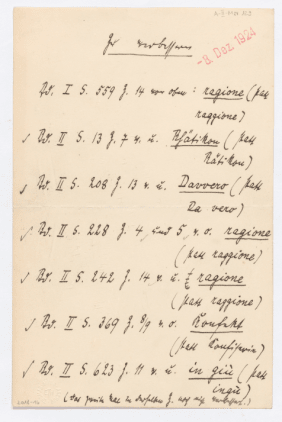 Zu verbessern
- 8. Dez. 1924
Bd. I S. 559 Z. 14 von oben: ragione (statt
raggione)
Bd. II S. 13 Z. 7 v. u. Rhätikon (statt
Rätikon)
Bd. II S. 208 Z. 13 v. u. Davvero (statt
Da vero)
Bd. II S. 228 Z. 4 und 5 v. o. ragione
(statt raggione)
Bd. II S. 242 Z. 14 v. u. ragione
(statt raggione)
Bd. II S. 369 Z. 8/9 v. o. Konfekt
(statt
Bd. II S. 623 Z. 11 v. u. in giù (statt
ingiù)
(das zweite Mal in derselben Z.